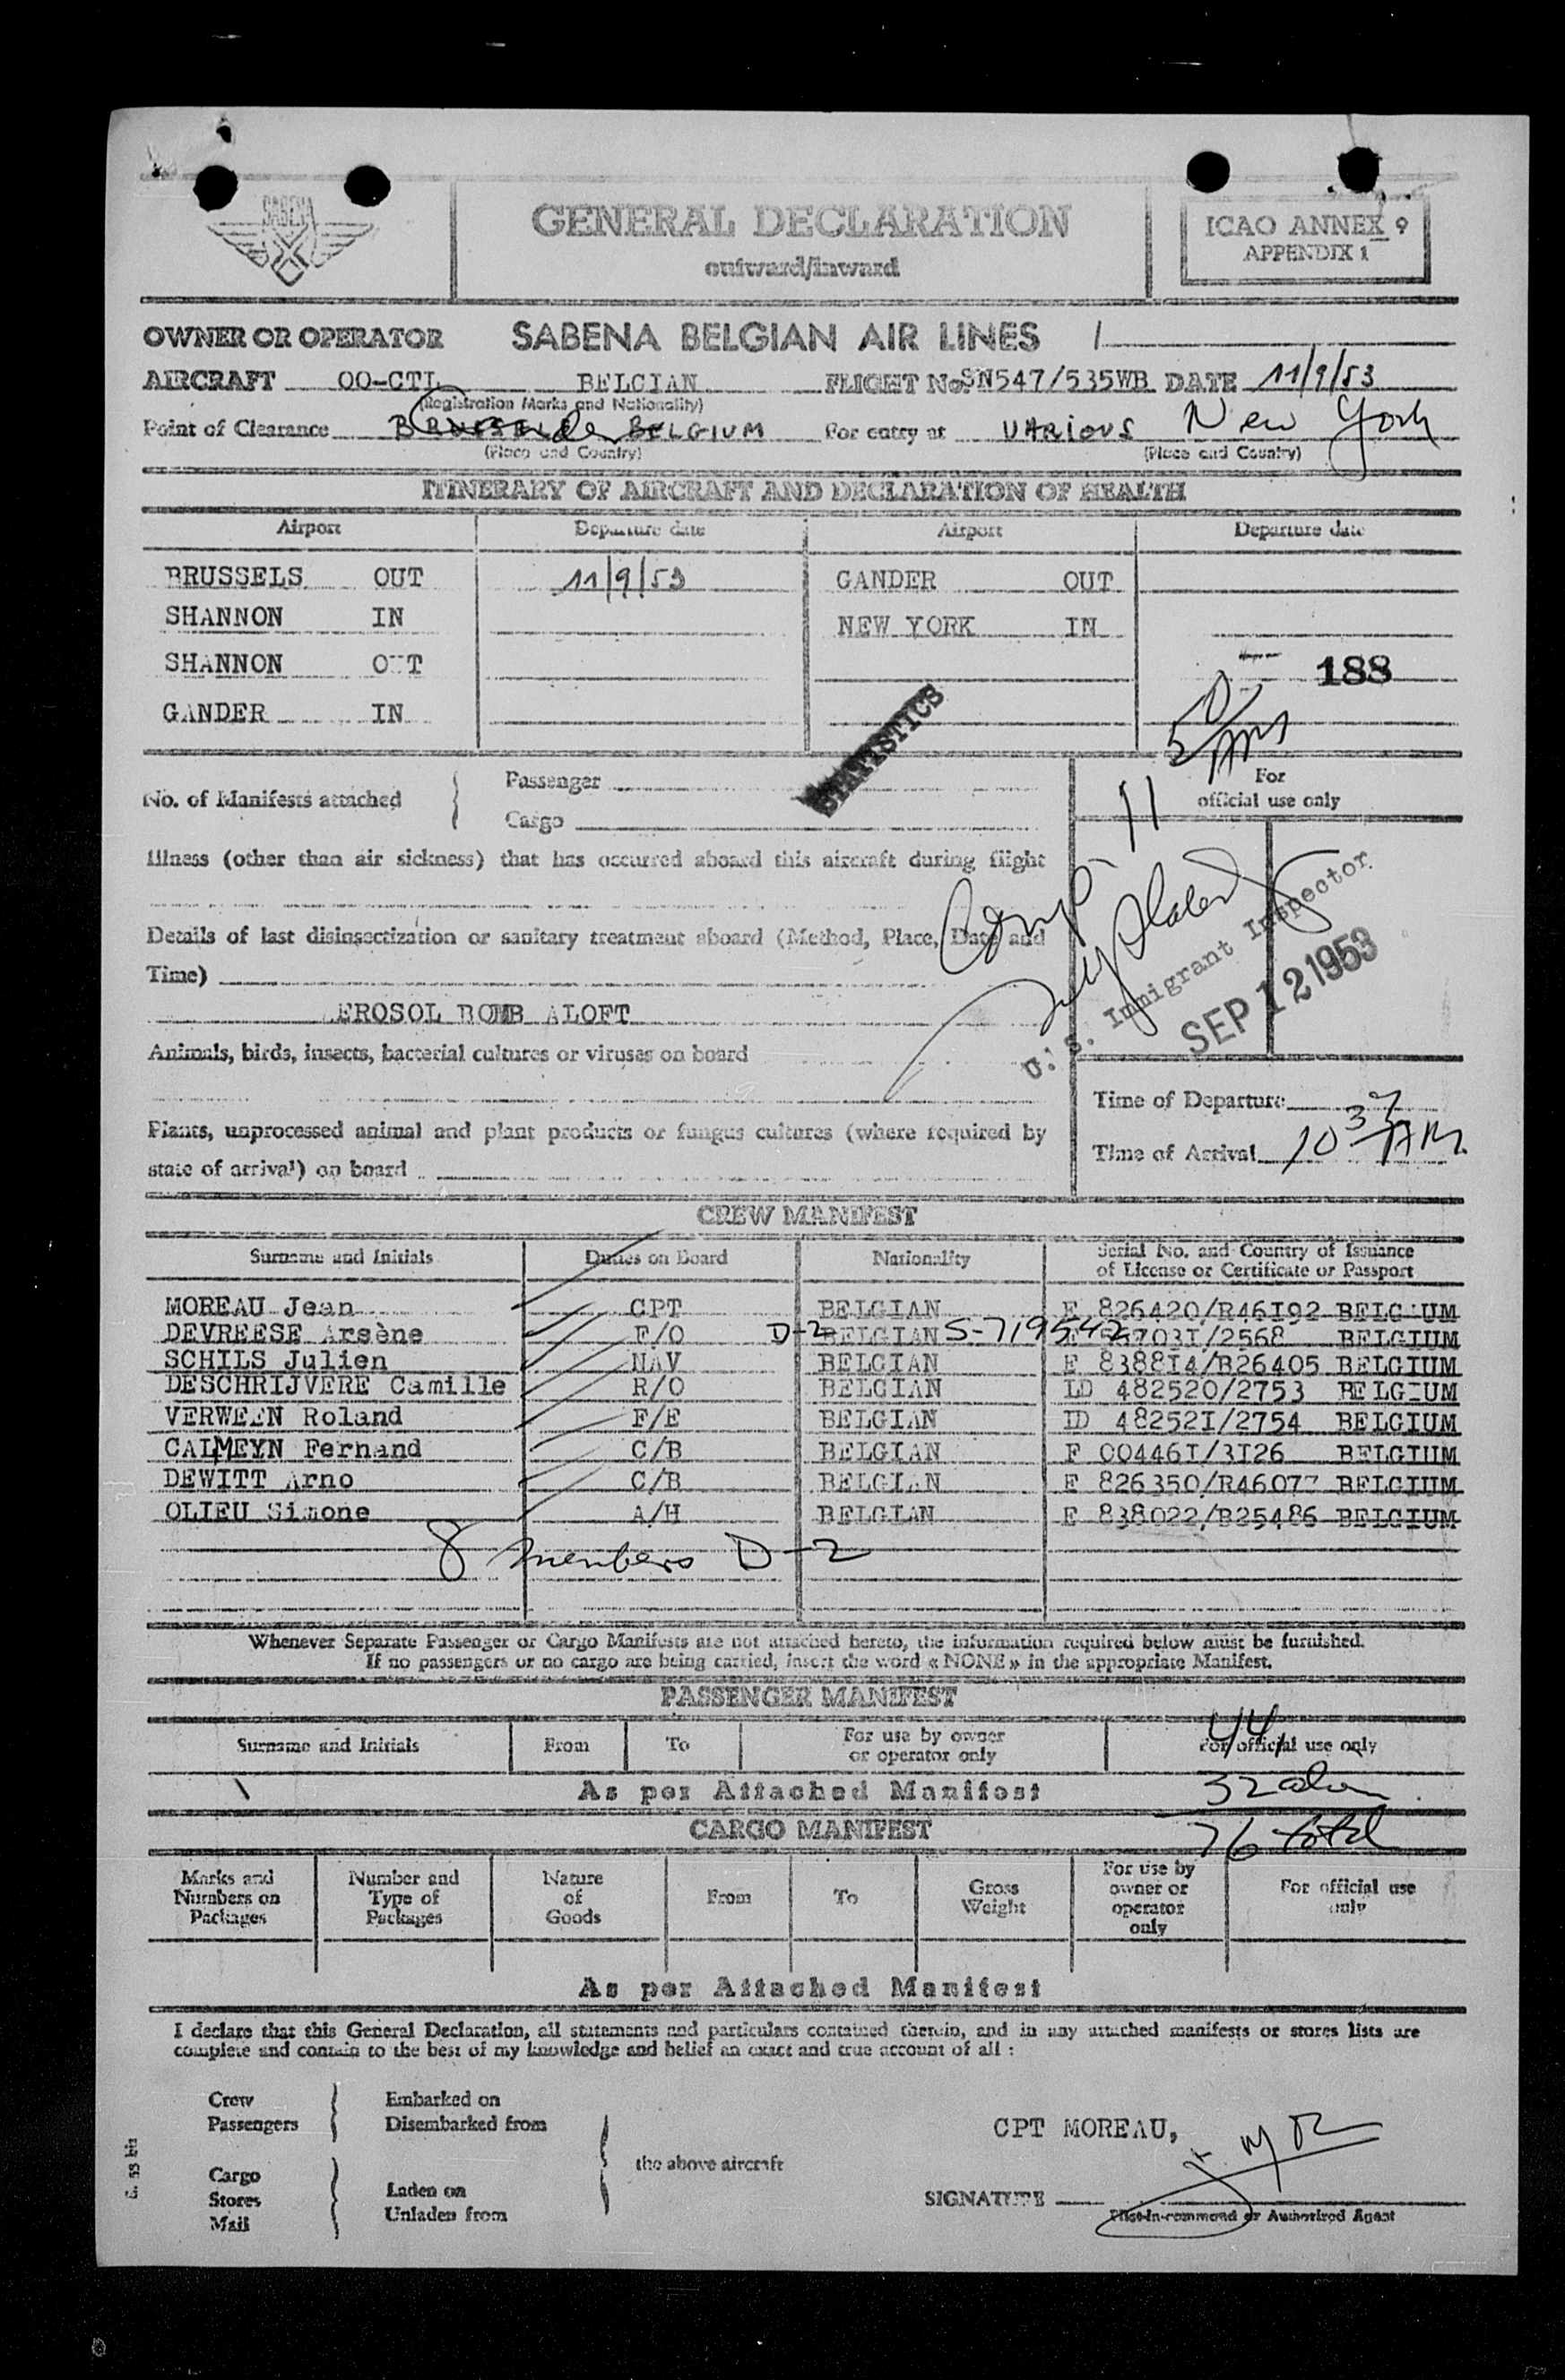 SABENA
GENERAL DECLARATION
outward/inward
ICAO ANNEX 9
APPENDIX 1
OWNER OR OPERATOR SABENA BELGIAN AIR LINES
AIRCRAFT OO-CTL BELGIAN FLIGHT No. SN547/535WB DATE 11/9/53
(Registration Marks and Nationality)
Point of Clearance BELGIUM For entry at VARIOUS New York
(Place and Country) (Place and Country)
ITINERARY OF AIRCRAFT AND DECLARATION OF HEALTH
Airport Departure date Airport Departure date
BRUSSELS OUT 11/9/53 GANDER OUT
SHANNON IN NEW YORK IN
SHANNON OUT 188
GANDER IN
STATISTICS
No. of Manifests attached Passenger
Cargo
For
official use only
11
Illness (other than air sickness) that has occurred aboard this aircraft during flight
Details of last disinsectization or sanitary treatment aboard (Method, Place, Date and
Time)
U.S. Immigrant Inspector
SEP 12 1953
AEROSOL BOMB ALOFT
Animals, birds, insects, bacterial cultures or viruses on board
Time of Departure
Plants, unprocessed animal and plant products or fungus cultures (where required by
state of arrival) on board
Time of Arrival 10 37 AM.
CREW MANIFEST
Surname and Initials Duties on Board Nationality Serial No. and Country of Issuance
of License or Certificate or Passport
MOREAU Jean CPT BELGIAN E 826420/R46I92 BELGIUM
DEVREESE Arsène F/O D-2 BELGIAN S-719542 /2568 BELGIUM
SCHILS Julien NAV BELGIAN E 8388I4/B26405 BELGIUM
DESCHRIJVERE Camille R/O BELGIAN ID 482520/2753 BELGIUM
VERWEEN Roland F/E BELGIAN ID 48252I/2754 BELGIUM
CALMEYN Fernand C/B BELGIAN F 00446I/3I26 BELGIUM
DEWITT Arno C/B BELGIAN E 826350/R46077 BELGIUM
OLIEU Simone A/H BELGIAN E 838022/B25486 BELGIUM
8 members D-2
Whenever Separate Passenger or Cargo Manifests are not attached hereto, the information required below must be furnished.
If no passengers or no cargo are being carried, insert the word « NONE » in the appropriate Manifest.
PASSENGER MANIFEST
44
Surname and Initials From To For use by owner
or operator only For official use only
As per Attached Manifest 32
CARGO MANIFEST 76 total
Marks and
Numbers on
Packages Number and
Type of
Packages Nature
of
Goods From To Gross
Weight For use by
owner or
operator
only For official use
only
As per Attached Manifest
I declare that this General Declaration, all statements and particulars contained therein, and in any attached manifests or stores lists are
complete and contain to the best of my knowledge and belief an exact and true account of all :
Crew Embarked on
Passengers Disembarked from
CPT MOREAU,
the above aircraft
Cargo
Stores Laden on
Mail Unladen from
SIGNATURE
Pilot-in-command or Authorized Agent